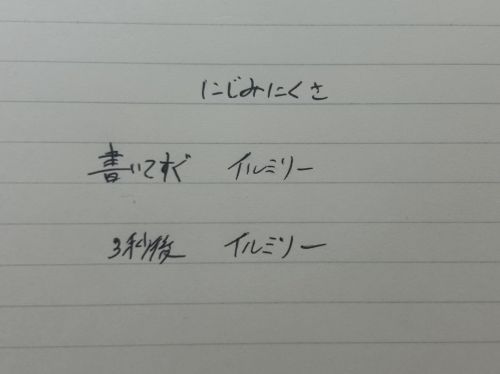 にじみにくさ
書いてすぐ イルミリー
3秒後 イルミリー